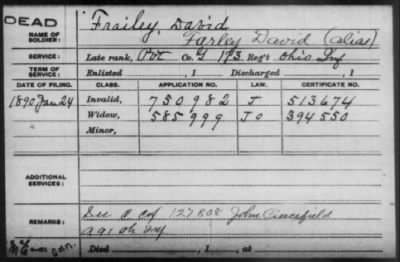 DEAD
NAME OF SOLDIER: Frailey, David
Farley David (alias)
SERVICE: Late rank, Pvt Co. G 193 Reg't Ohio Inf
TERM OF SERVICE: Enlisted , 1 Discharged , 1
DATE OF FILING. CLASS. APPLICATION NO. LAW. CERTIFICATE NO.
1890 Jan 24 Invalid, 750982 J 513674
Widow, 585999 Jo 394550
Minor,
ADDITIONAL SERVICES:
REMARKS: See 127808 John
Died , 1 , at